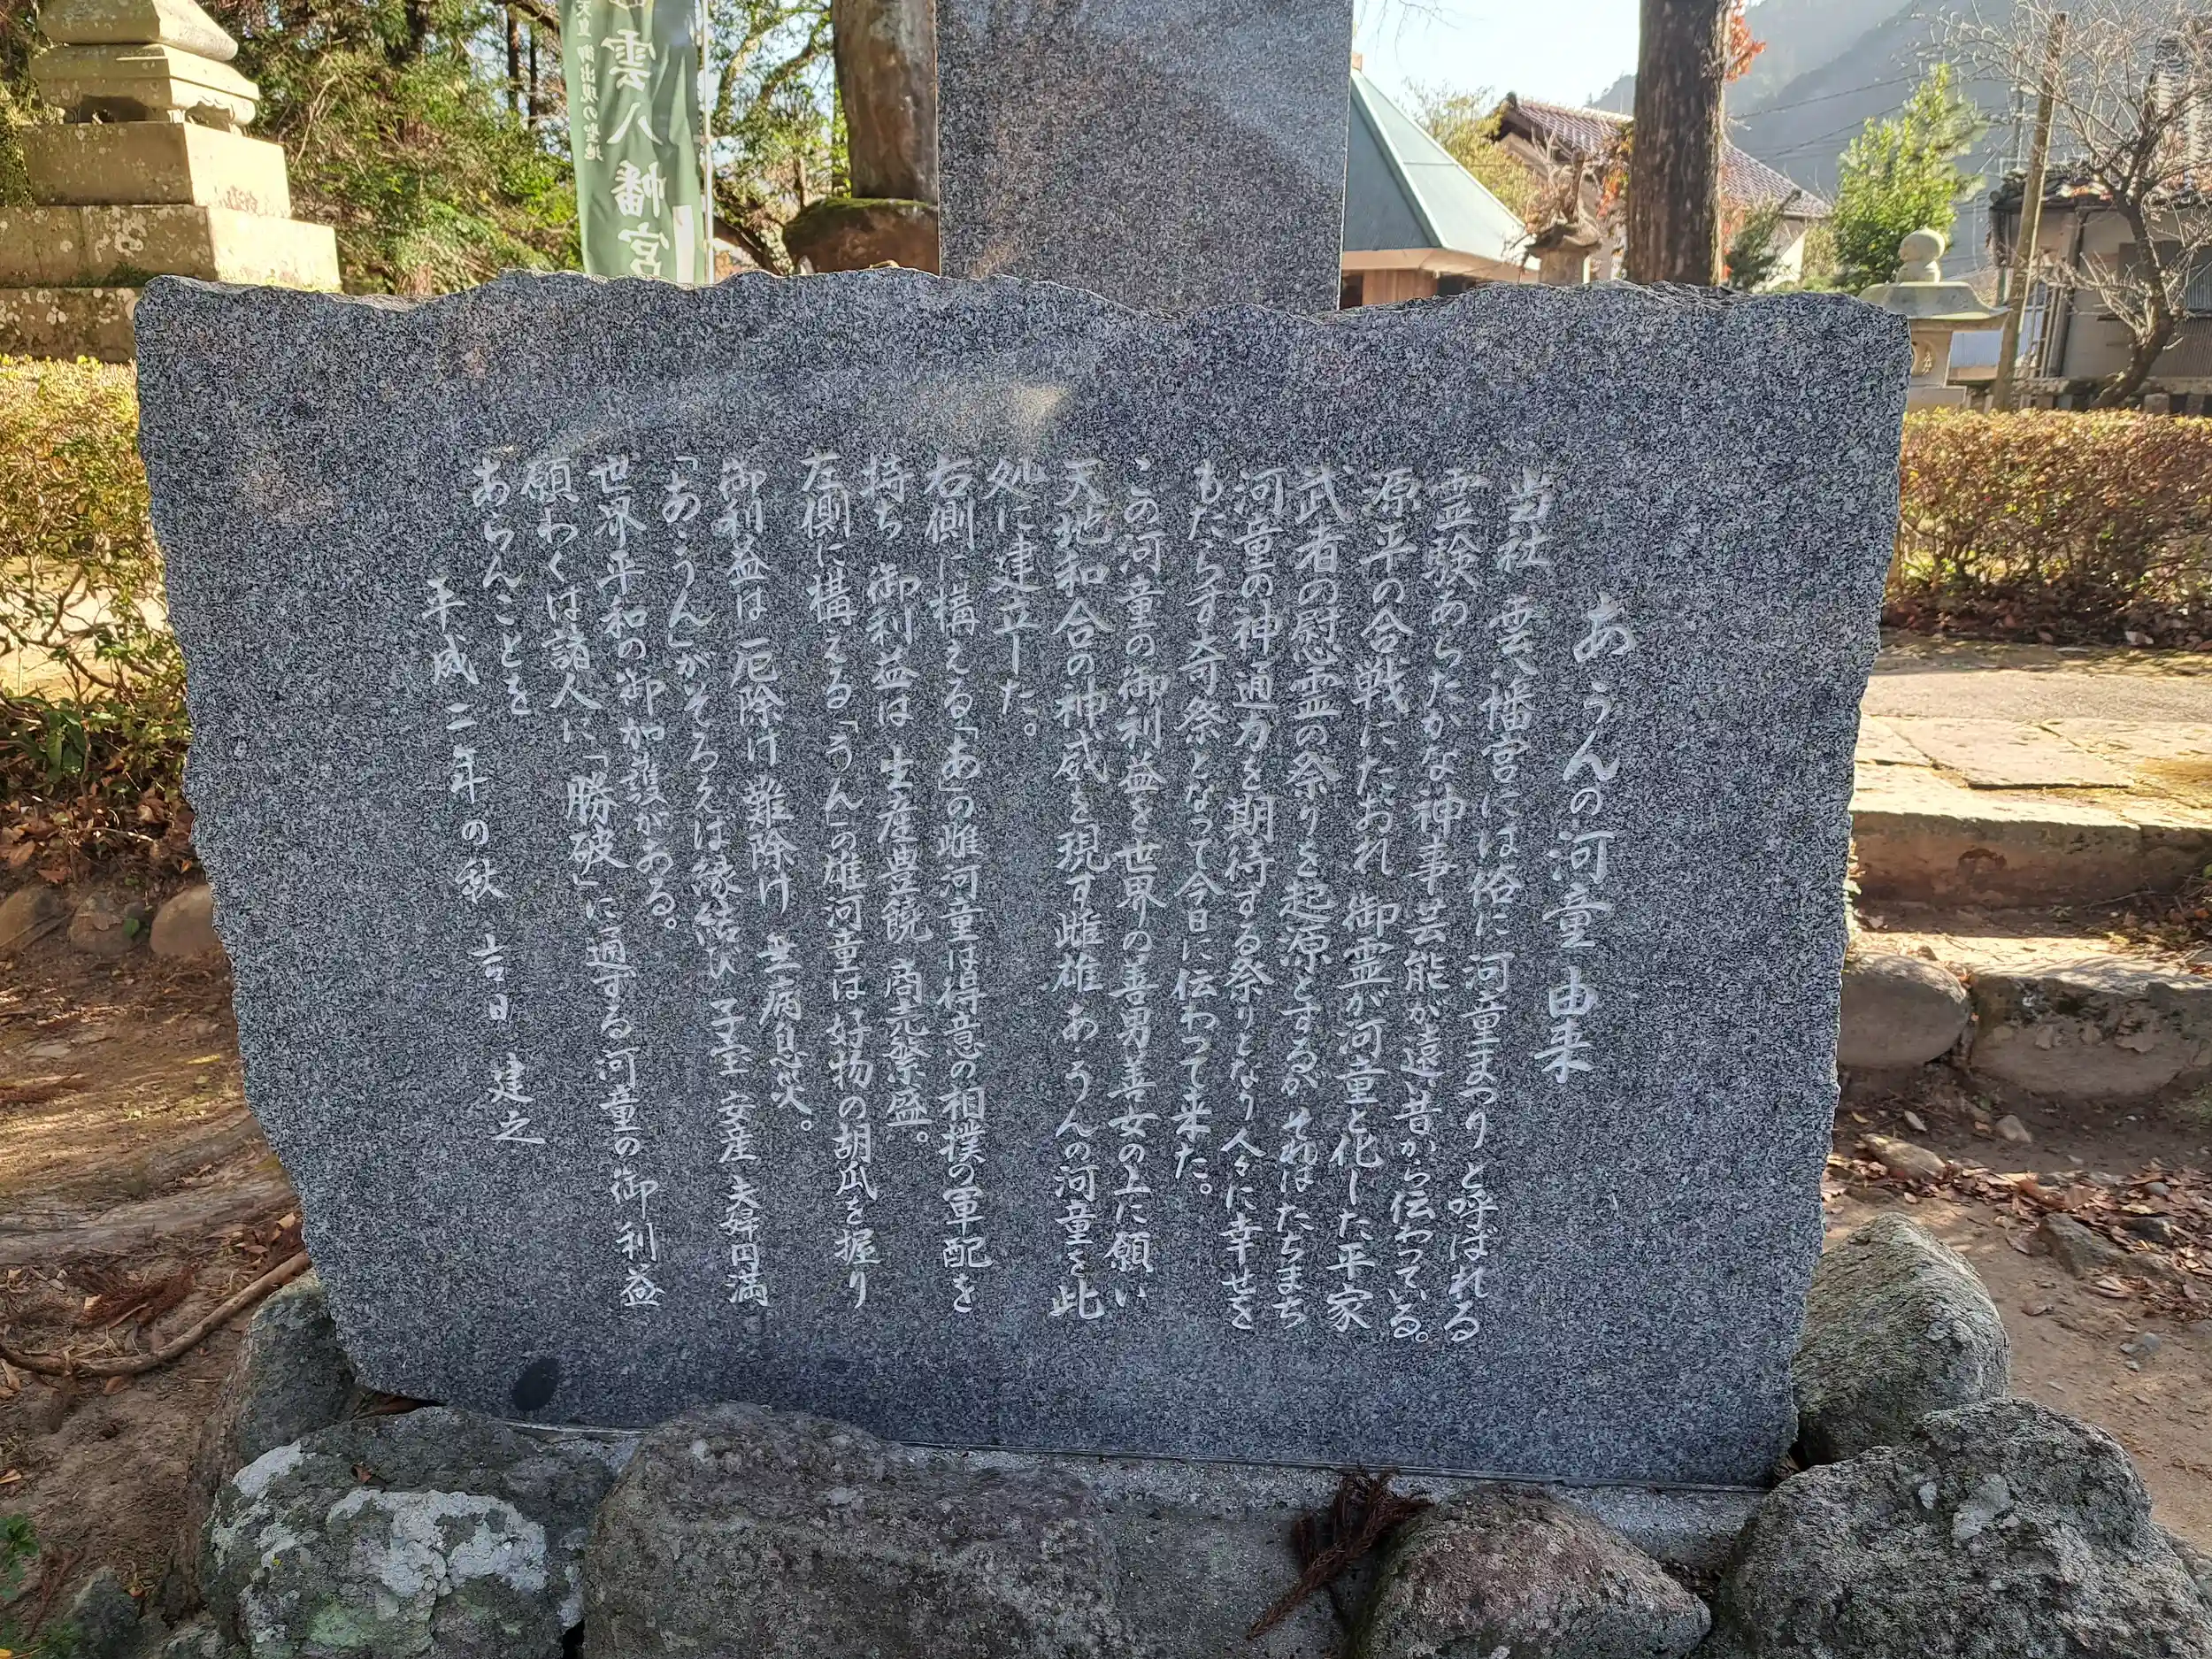 あうんの河童由来
当社 雲八幡宮には俗に河童まつりと呼ばれる
霊験あらたかな神事芸能が遠い昔から伝わっている。
源平の合戦にたおれ 御霊が河童と化した平家
武者の慰霊の祭りを起源とするが それはたちまち
河童の神通力を期待する祭りとなり 人々に幸せを
もたらす奇祭となって今日に伝わって来た。
この河童の御利益を世界の善男善女の上に願い
天地和合の神威を現す雌雄 あうんの河童を此
処に建立した。
右側に構える「あ」の雌河童は得意の相撲の軍配を
持ち 御利益は 生産豊饒 商売繁盛。
左側に構える「うん」の雄河童は好物の胡瓜を握り
御利益は 厄除け 難除け 無病息災。
「あ・うん」がそろえば縁結び 子宝 安産 夫婦円満
世界平和の御加護がある。
願わくは諸人に「勝破」に通ずる河童の御利益
あらんことを
平成二年の秋 吉日 建之
雲八幡宮
天皇 御出現の聖地